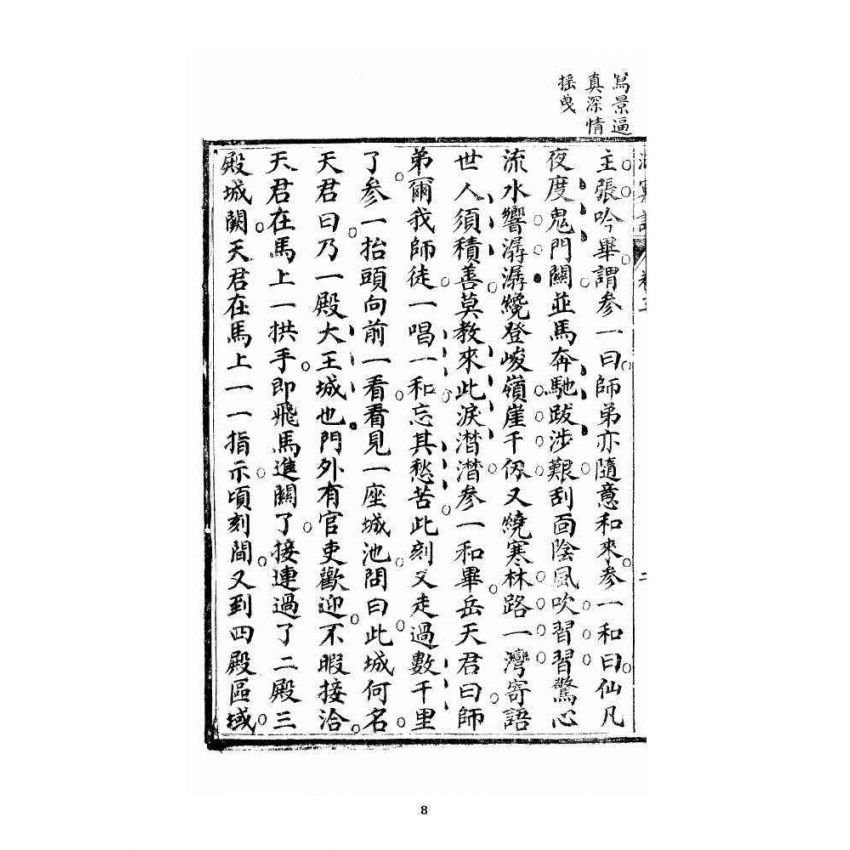 寫景逼
真深情
搖曳
主張吟畢謂参一曰師弟亦隨意和來参一和曰仙凡
夜度鬼門關並馬奔馳跋涉艱刮面陰風吹習習驚心
流水響潺潺纔登峻嶺崖千仭又繞寒林路一灣寄語
世人須積善莫教來此淚潸潸参一和畢岳天君曰師
弟爾我師徒一唱一和忘其愁苦此刻又走過數千里
了参一抬頭向前一看看見一座城池問曰此城何名
天君曰乃一殿大王城也門外有官吏歡迎不暇接洽
天君在馬上一拱手即飛馬進關了接連過了二殿三
殿城闕天君在馬上一一指示頃刻間又到四殿區域
8